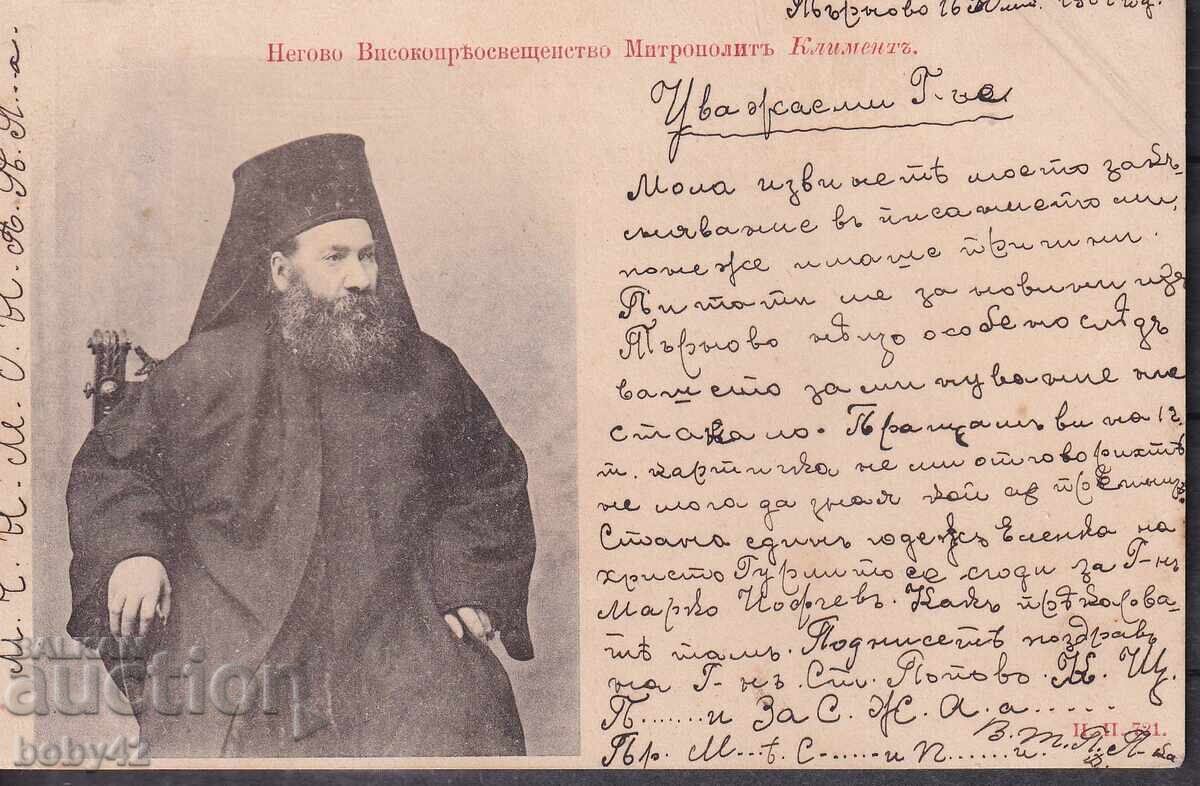 Търново 16
Негово Високопрѣосвещенство Митрополитъ Климентъ.
Уважаеми Г-не
Моля извинетѣ моето закъ-
сняване въ писанието ми,
понеже имаше причини.
Питати ме за новини изъ
Търново нѣщо особено слѣдъ
вашето заминуване не
станало. Пращамъ ви на 12
т. картичка не ми отговорихтѣ
не мога да зная кой
Стана единъ годежъ Еленка на
христо се сгоди за Г-нъ
Марко Йовчевъ. Какъ прѣкарва-
тѣ тамъ. Поднисетѣ поздравъ
на Г-нъ. Ст. Попово. К. Щ.
П......и За С. Ж. А. а......
Пр. М...ѣ. С....и П......и.
В. Т.
И. П. 721.
М. Ч. И. М. О. И. П. П. П...а.
BALKAN
auction
boby42